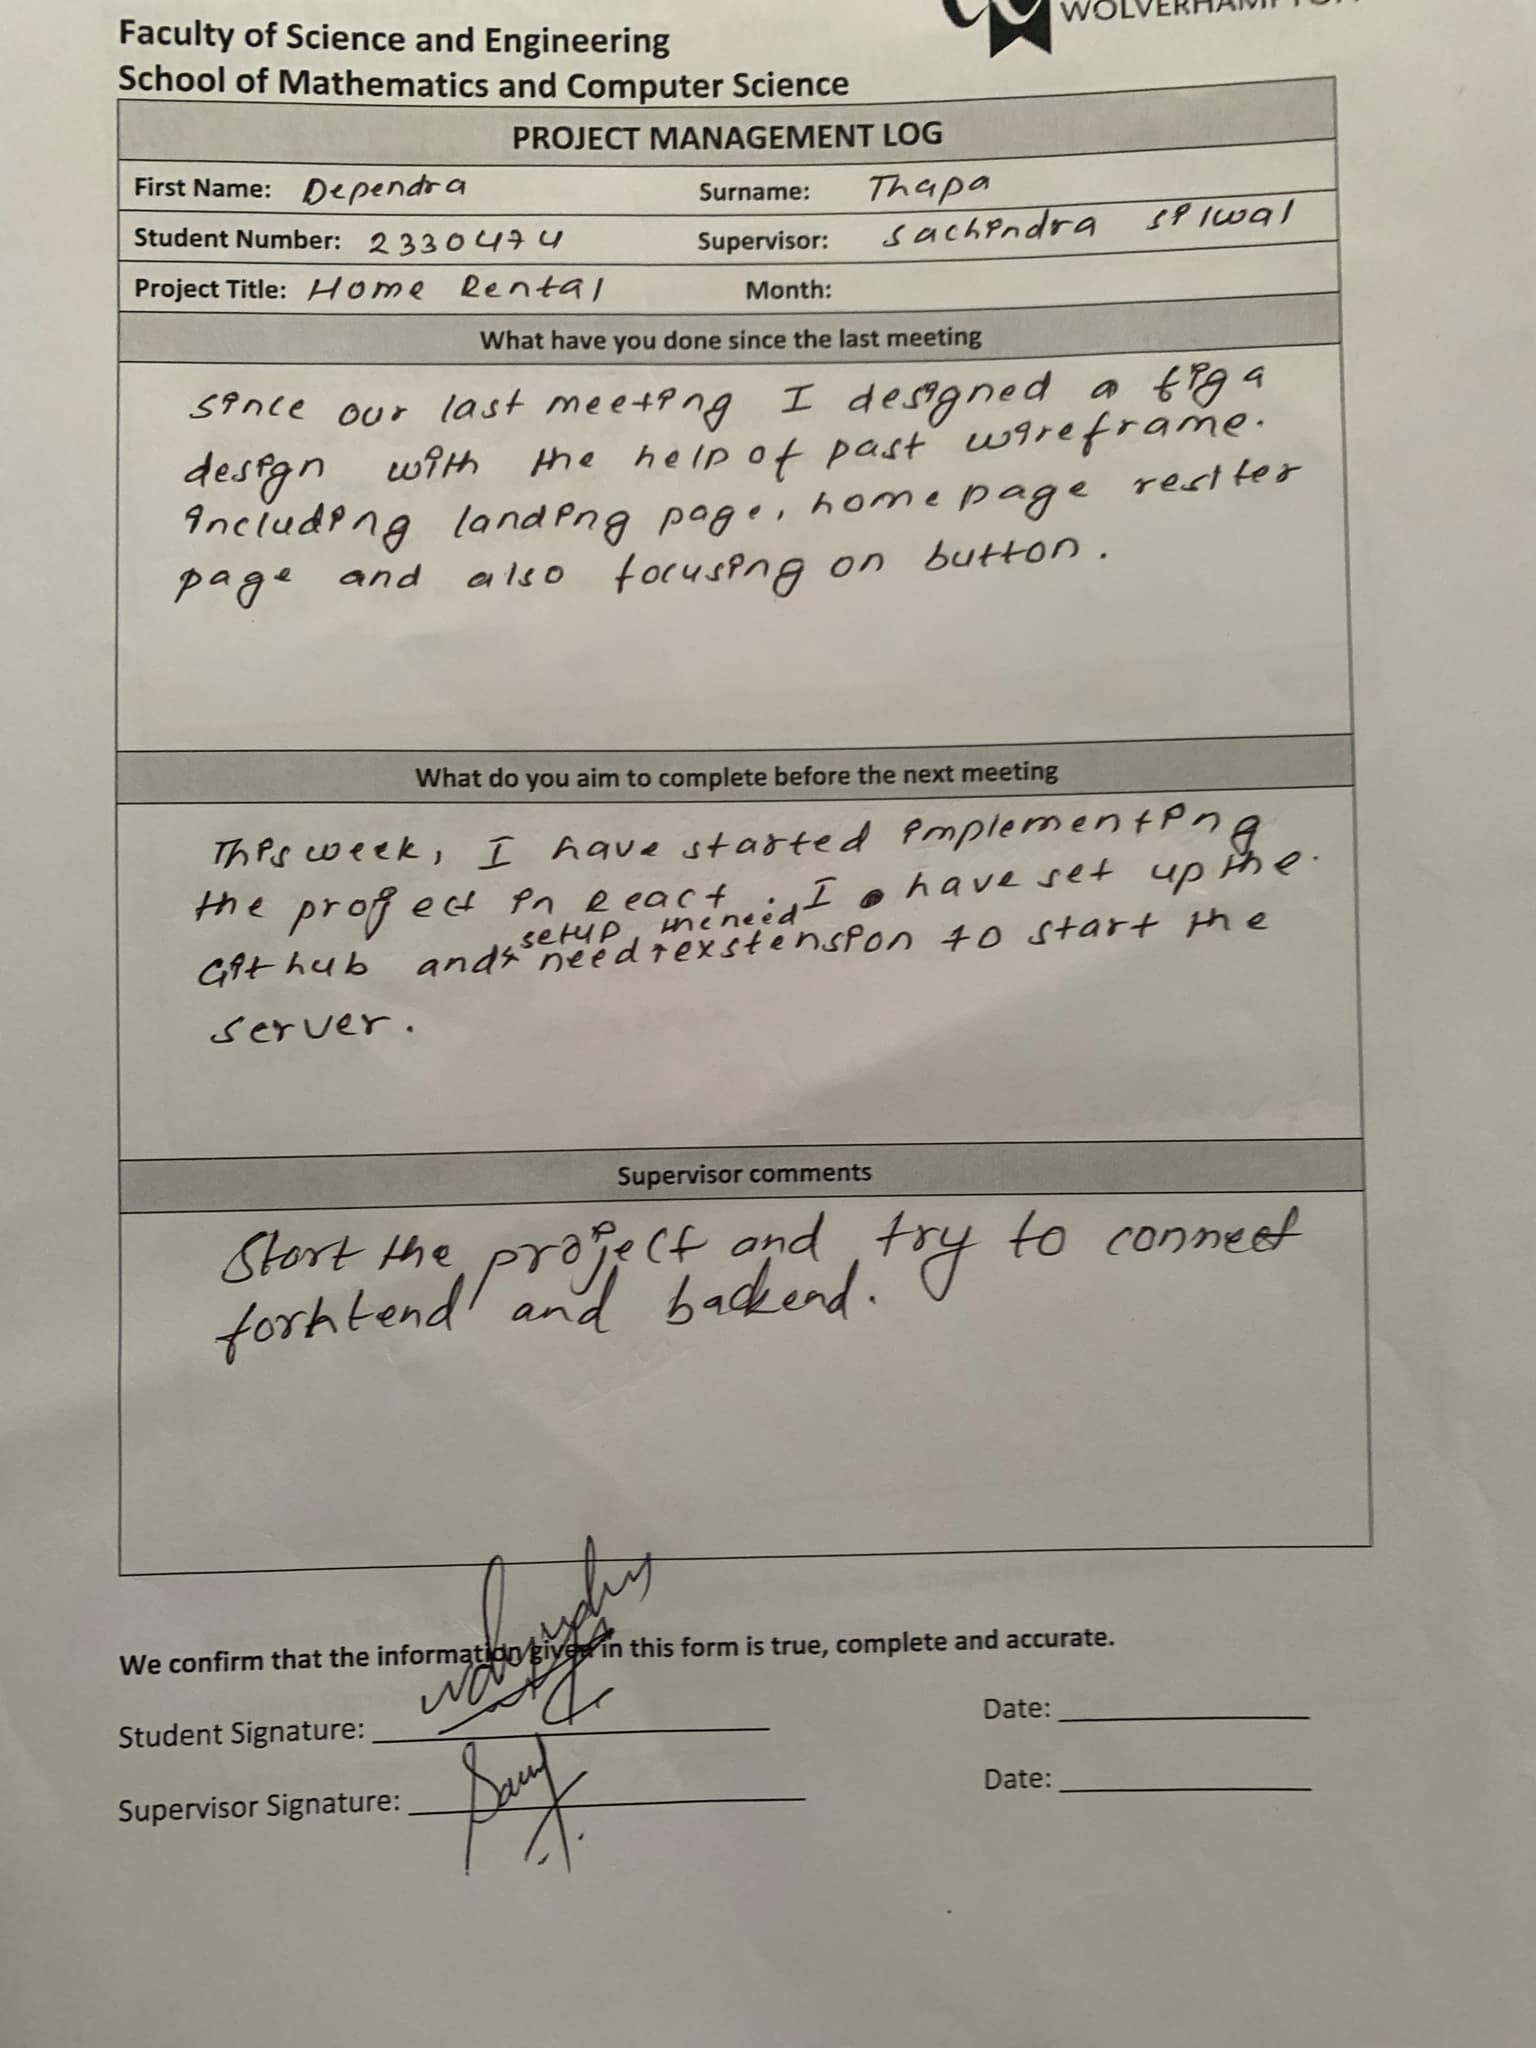 WOLVERHAMPTON
Faculty of Science and Engineering
School of Mathematics and Computer Science
PROJECT MANAGEMENT LOG
First Name: Dependra Surname: Thapa
Student Number: 2330474 Supervisor: Sachindra Silwal
Project Title: Home Rental Month:
What have you done since the last meeting
Since our last meeting I designed a figa
design with the help of past wireframe.
including landing page, home page resiter
page and also focusing on button.
What do you aim to complete before the next meeting
This week, I have started implementing
the project in React. I have set up the
setup, the need
Github and need exstension to start the
server.
Supervisor comments
Start the project and try to connect
forhtend and backend.
We confirm that the information given in this form is true, complete and accurate.
Student Signature: Date:
Supervisor Signature: Date: